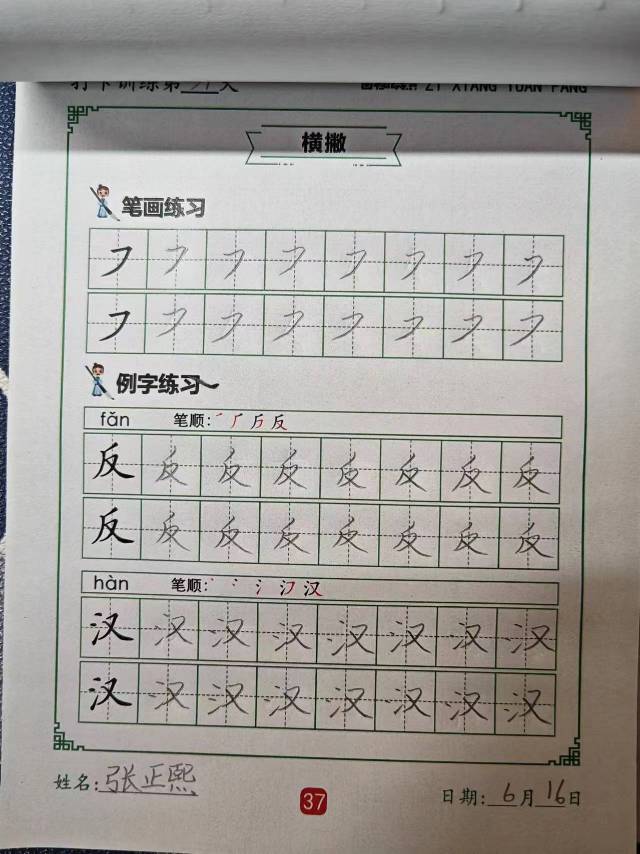 打卡训练第37天
ZI XIANG YUAN FANG
横撇
笔画练习
㇇ ㇇ ㇇ ㇇ ㇇ ㇇ ㇇ ㇇
㇇ ㇇ ㇇ ㇇ ㇇ ㇇ ㇇ ㇇
例字练习
fǎn 笔顺: 反
反 反 反 反 反 反 反 反
反 反 反 反 反 反 反 反
hàn 笔顺: 丶 冫 氵 汉
汉 汉 汉 汉 汉 汉 汉 汉
汉 汉 汉 汉 汉 汉 汉 汉
姓名: 张正熙
37
日期: 6月16日